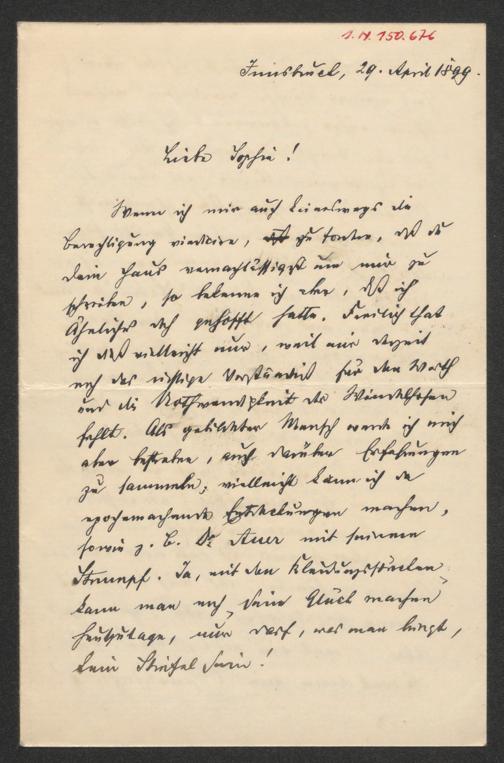 I.N. 150.676
Innsbruck, 29. April 1899.
Liebe Sophie!
Wenn ich mir auch keineswegs die
Berechtigung vindicire, zu fordern, daß du
dein Haus vernachlässigst um mir zu
schreiben, so bekenne ich aber, daß ich
Ähnliches doch gehofft hatte. Freilich that
ich dieß vielleicht nur, weil mir derzeit
noch das richtige Verständniß für den Werth
und die Nothwendigkeit der Windelhosen
fehlt. Als gebildeter Mensch werde ich mich
aber bestreben, auch darüber Erfahrungen
zu sammeln; vielleicht kann ich da
epochemachende Entdeckungen machen,
sowie z. B. Dr Auer mit seinem
Strumpf. Ja, mit den Kleidungsstücken
kann man noch sein Glück machen
heutzutage, nur darf, was man bringt,
kein Stiefel sein!